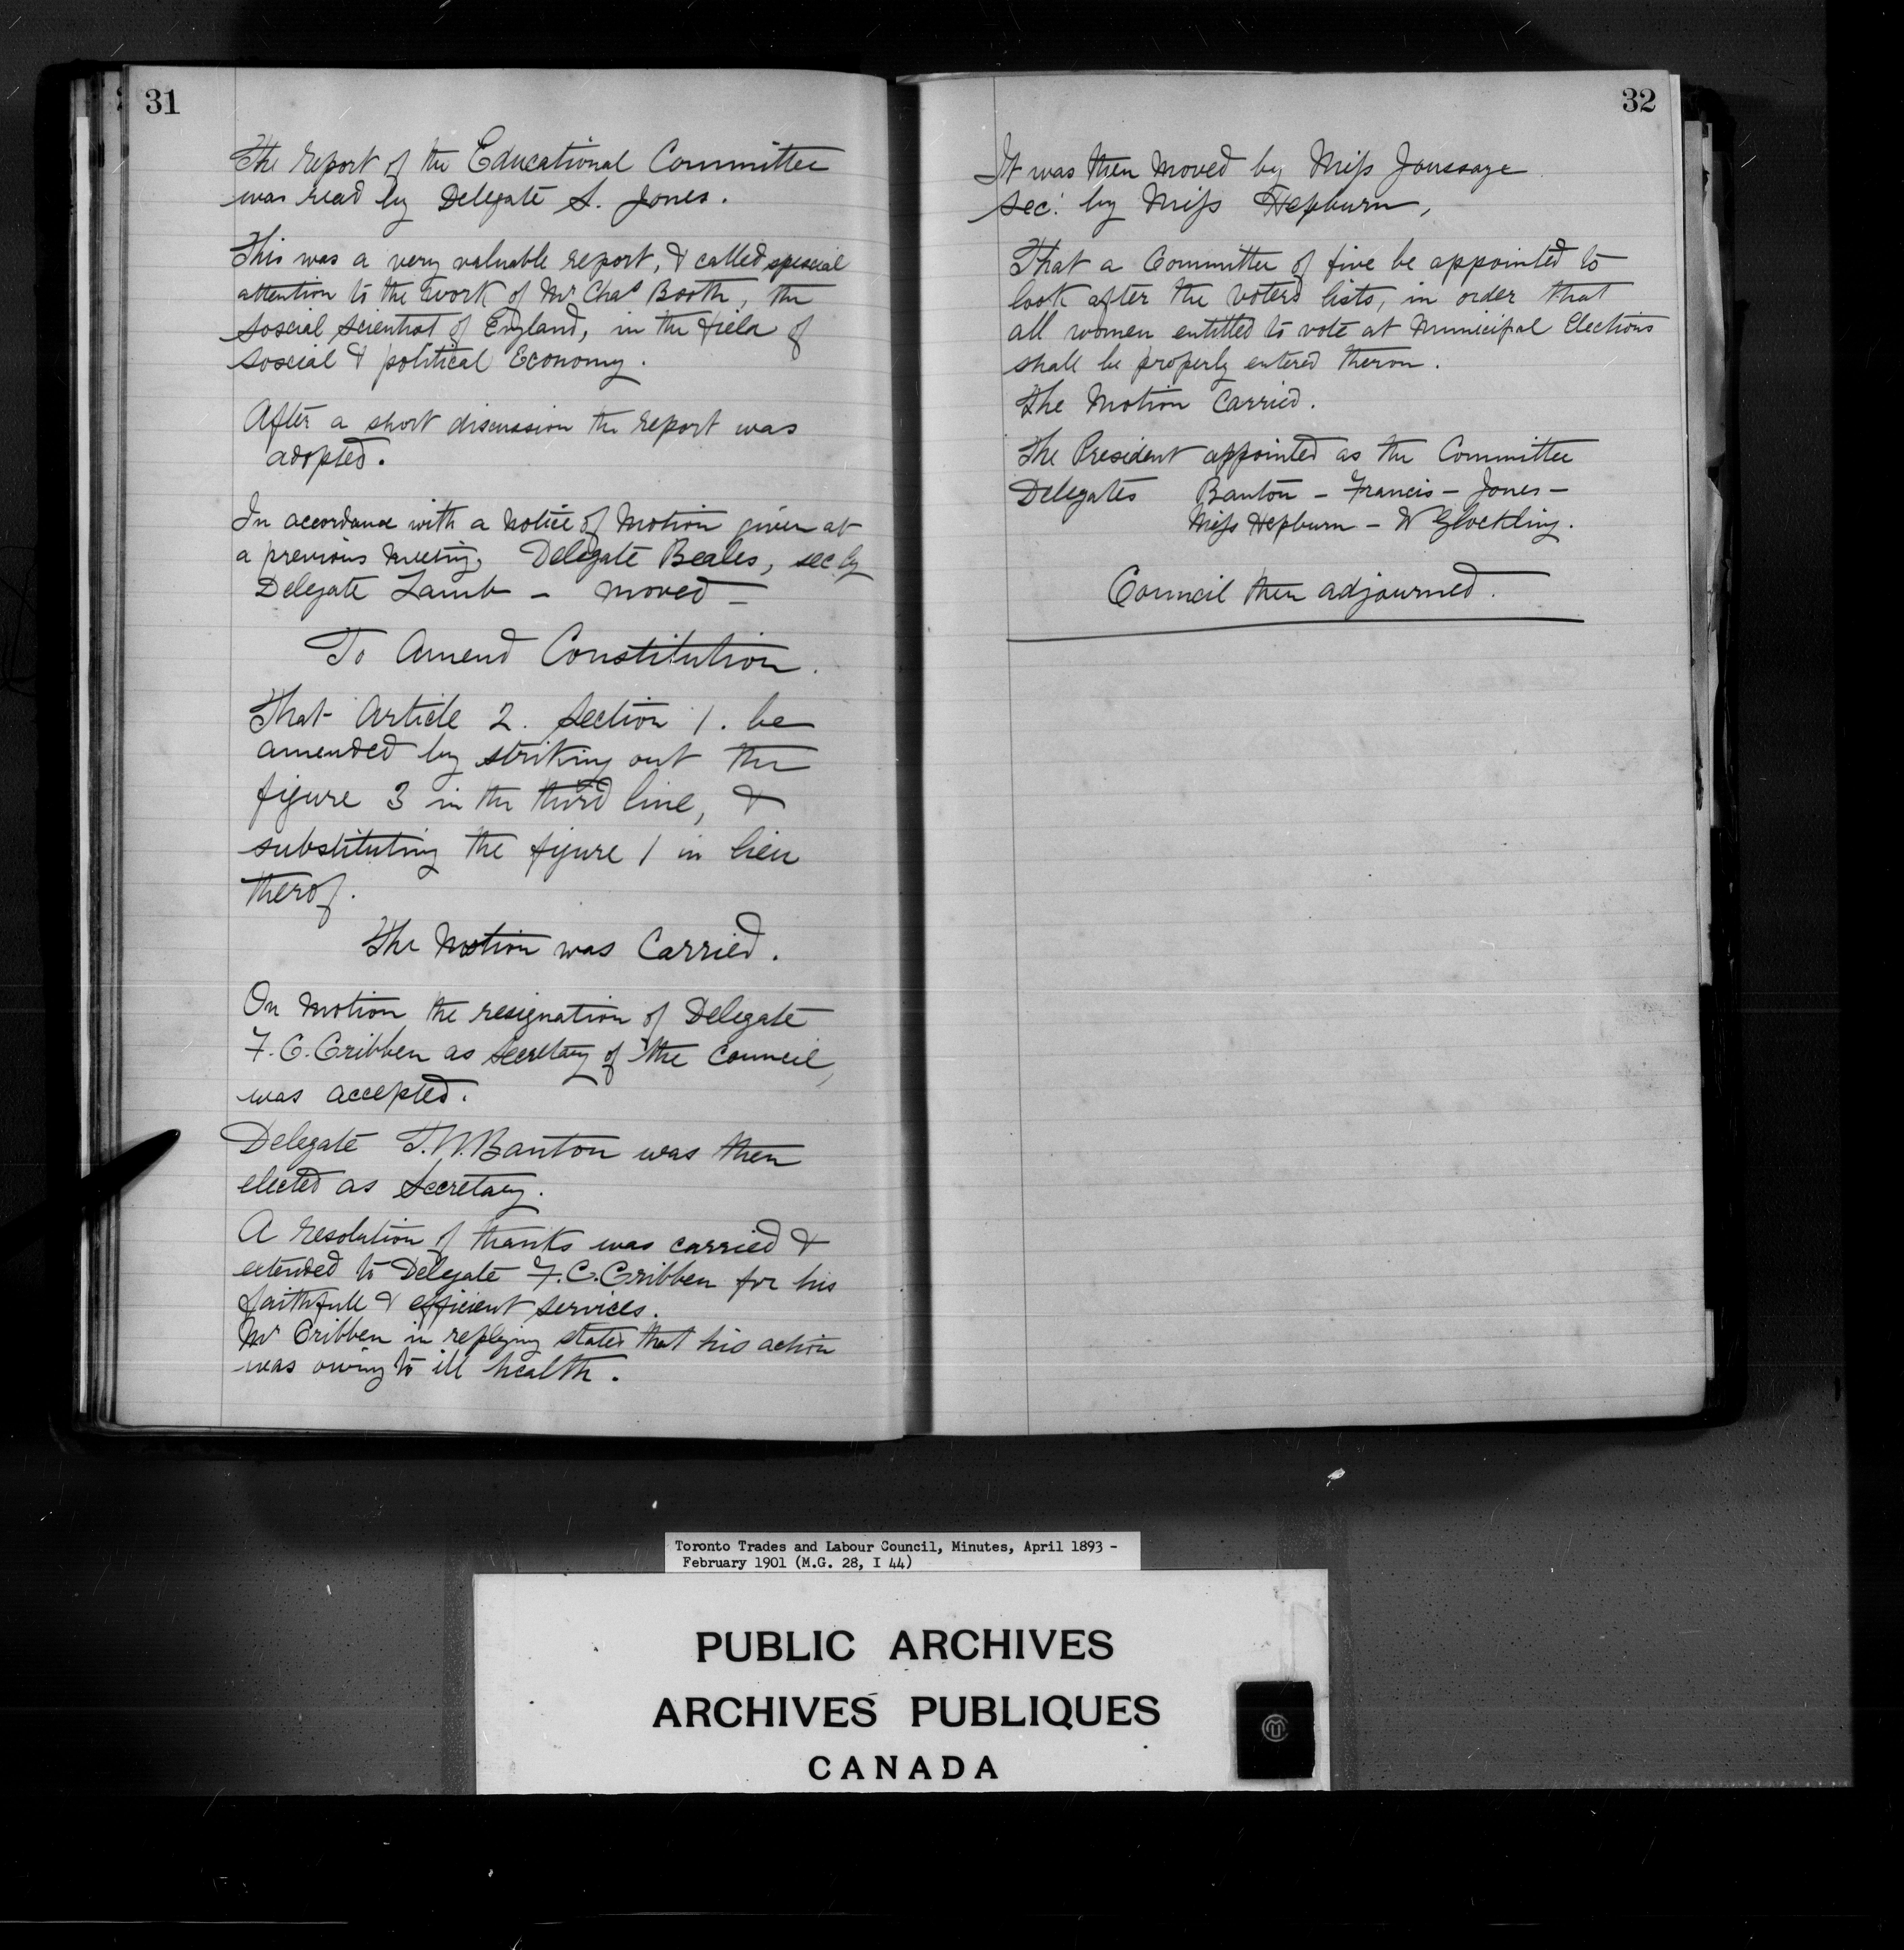 31
The report of the Educational Committee
was read by Delegate S. Jones.
This was a very valuable report, & called spescial
attention to the work of Mr Chas Booth, the
soscial scientist of England, in the field of
soscial & political Economy.
After a short discussion the report was
adopted.
In accordance with a notice of Motion given at
a previous meeting, Delegate Beales, sec by
Delegate Lamb - moved -
To Amend Constitution.
That Article 2. Section 1. be
amended by striking out the
figure 3 in the third line, &
substituting the figure 1 in lieu
therof.
The Motion was Carried.
On Motion the resignation of Delegate
F. C. Cribben as Secretary of the Council,
was accepted.
Delegate T. W. Banton was then
elected as Secretary.
A resolution of thanks was carried &
extended to Delegate F. C. Cribben for his
faithfull & efficient services.
Mr Cribben in replying stated that his action
was owing to ill health.
32
It was then moved by Miss Joussaye
sec. by Miss Hepburn,
That a Committee of five be appointed to
look after the voters lists, in order that
all women entitled to vote at Municipal Elections
shall be properly entered theron.
The Motion Carried.
The President appointed as the Committee
Delegates Banton - Francis - Jones -
Miss Hepburn - W Glockling.
Council then adjourned.
Toronto Trades and Labour Council, Minutes, April 1893 -
February 1901 (M.G. 28, I 44)
PUBLIC ARCHIVES
ARCHIVES PUBLIQUES
CANADA